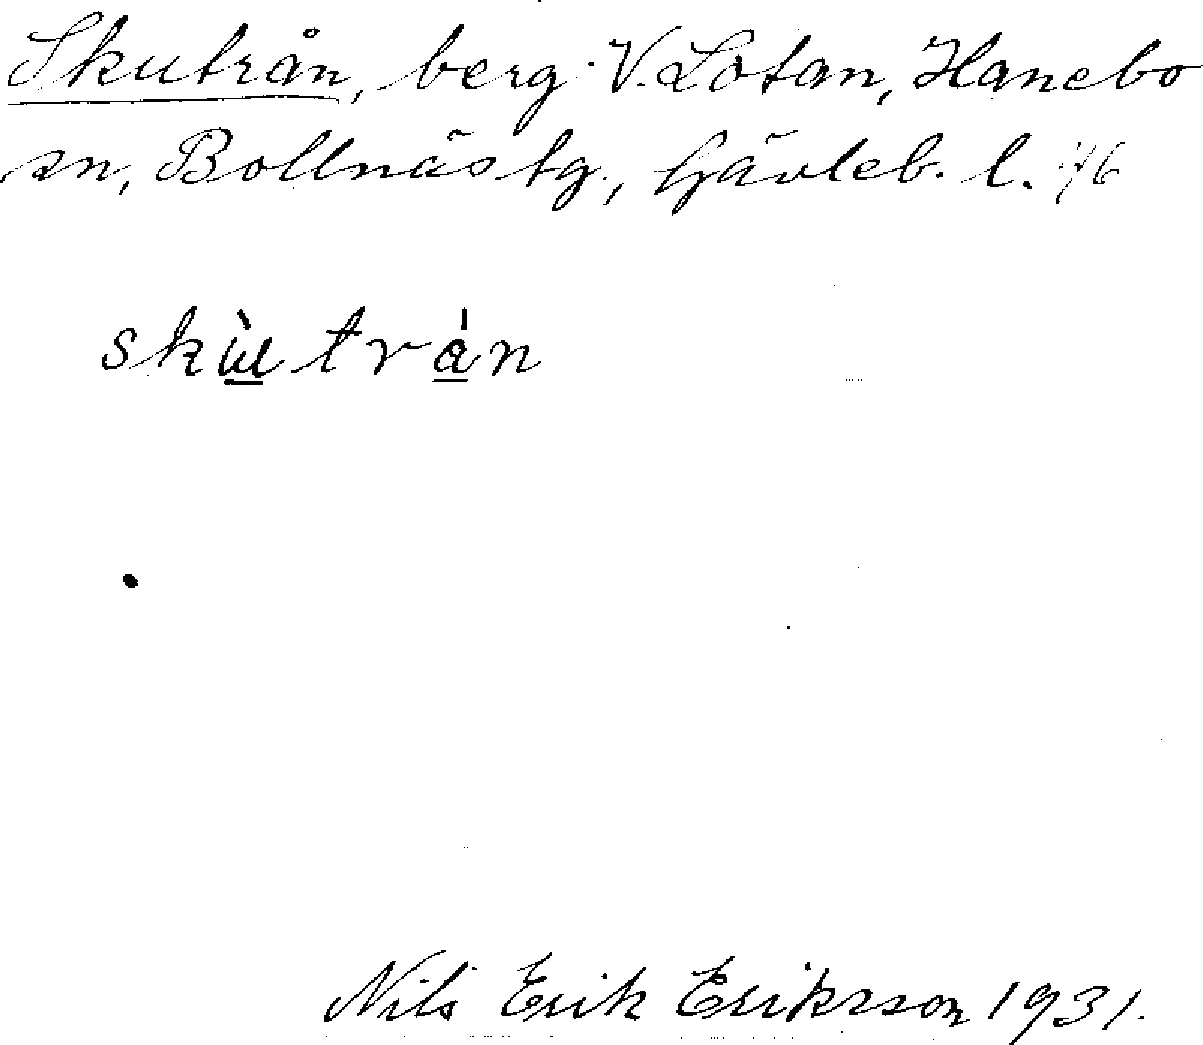 Skutrån, berg V. Lotan, Hanebo
sn, Bollnäs tg., Gävleb. l. 46
skùtrån
Nils Erik Eriksson 1931.